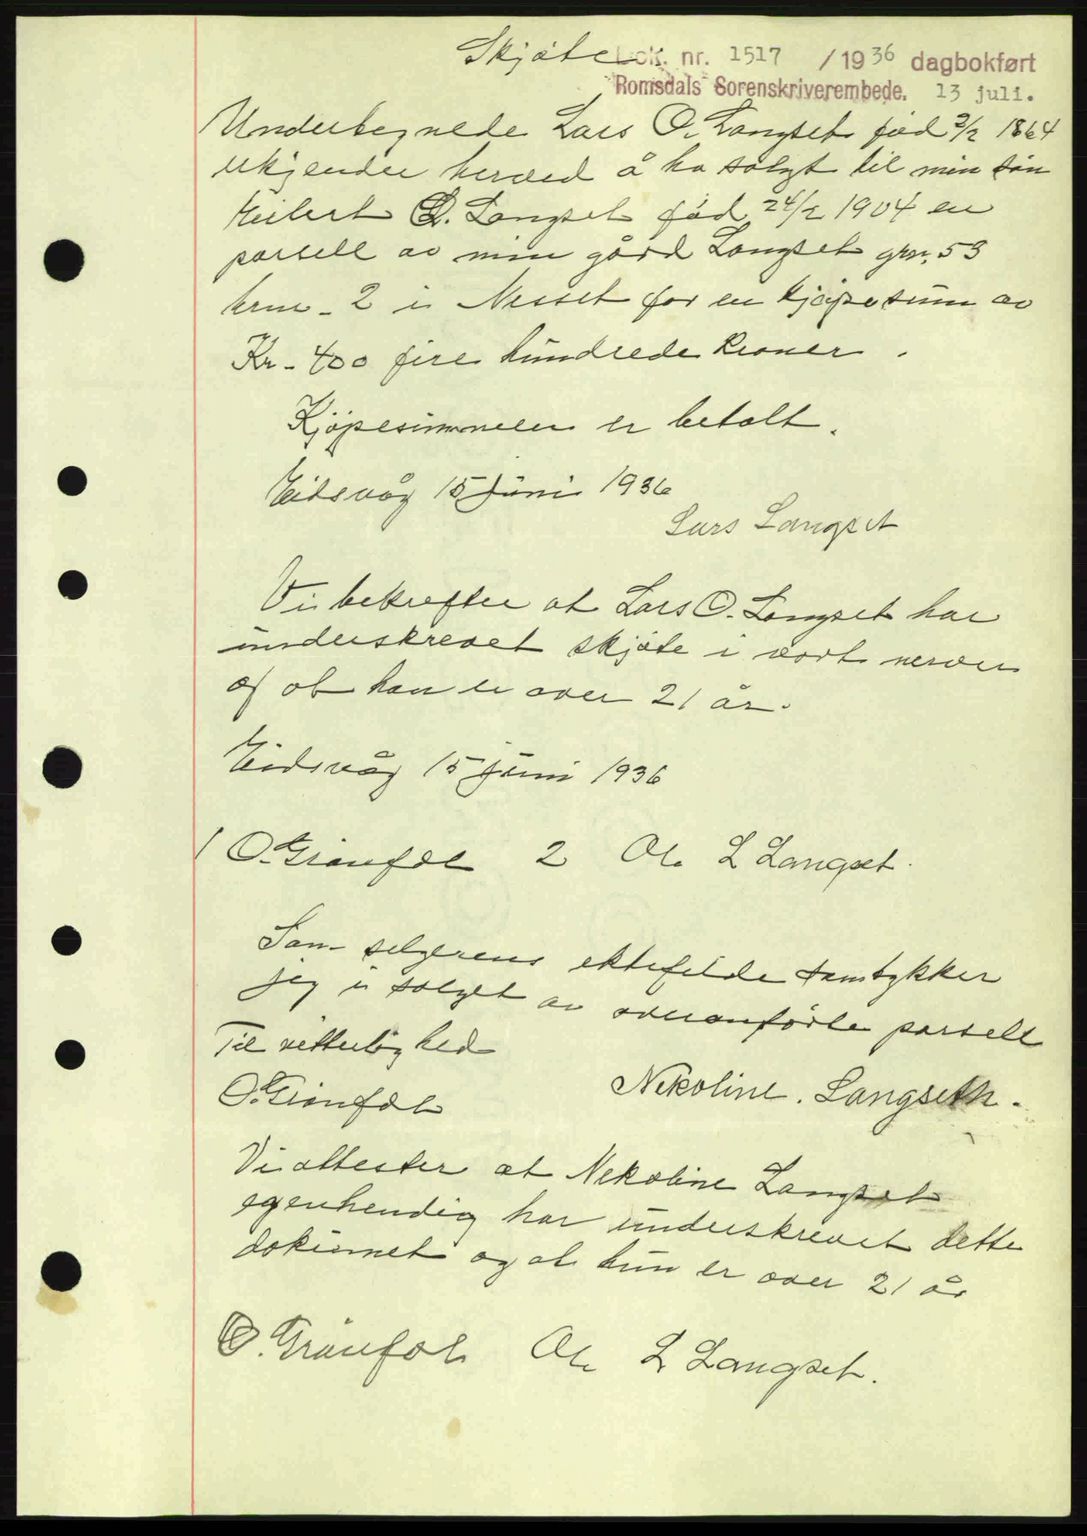 Skjøte
Dok. nr. 1517 / 1936 dagbokført
Romsdals Sorenskriverembede. 13 juli.
Undertegnede Lars O. Langset född 3/2 1864
erkjender herved å ha solgt til min sön
Eilert L. Langset född 24/2 1904 en
parsell av min gård Langset grn. 53
brnr. 2 i Nesset for en kjøpesum av
Kr. 400 fire hundrede kroner.
Kjøpesummen er betalt.
Eidsvåg 15 juni 1936
Lars Langset
Vi bekrefter at Lars O. Langset har
underskrevet skjøte i vort nærvær
og at han er over 21 år.
Eidsvåg 15 juni 1936
1 O. Grånfol 2 Ole L Langset.
Som selgerens ektefelde samtykker
jeg i salget av overanførte parsell
Til vitterlighed
Nekoline. Langseth.
O. Grånfol
Vi attester at Nekoline Langset
egenhendig har underskrevet dette
dokumet og at hun er over 21 år
O. Grånfol Ole L Langset.